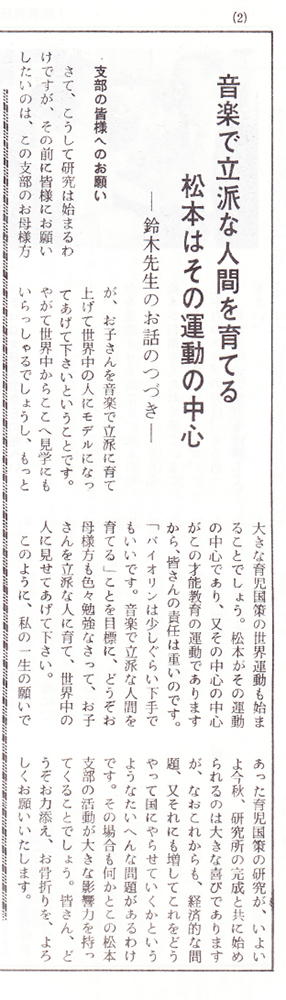 (2)
音楽で立派な人間を育てる
松本はその運動の中心
―鈴木先生のお話のつづき―
支部の皆様へのお願い
さて、こうして研究は始まるわ
けですが、その前に皆様にお願い
したいのは、この支部のお母様方
が、お子さんを音楽で立派に育て
上げて世界中の人にモデルになっ
てあげて下さいということです。
やがて世界中からここへ見学にも
いらっしゃるでしょうし、もっと
大きな育児国策の世界運動も始ま
ることでしょう。松本がその運動
の中心であり、又その中心の中心
がこの才能教育の運動であります
から、皆さんの責任は重いのです。
「バイオリンは少しぐらい下手で
もいいです。音楽で立派な人間を
育てる」ことを目標に、どうぞお
母様方も色々勉強なさって、お子
さんを立派な人に育て、世界中の
人に見せてあげて下さい。
このように、私の一生の願いで
あった育児国策の研究が、いよい
よ今秋、研究所の完成と共に始め
られるのは大きな喜びであります
が、なおこれからも、経済的な問
題、又それにも増してこれをどう
やって国にやらせていくかという
ようなたいへんな問題があるわけ
です。その場合も何かとこの松本
支部の活動が大きな影響力を持っ
てくることでしょう。皆さん、ど
うぞお力添え、お骨折りを、よろ
しくお願いいたします。